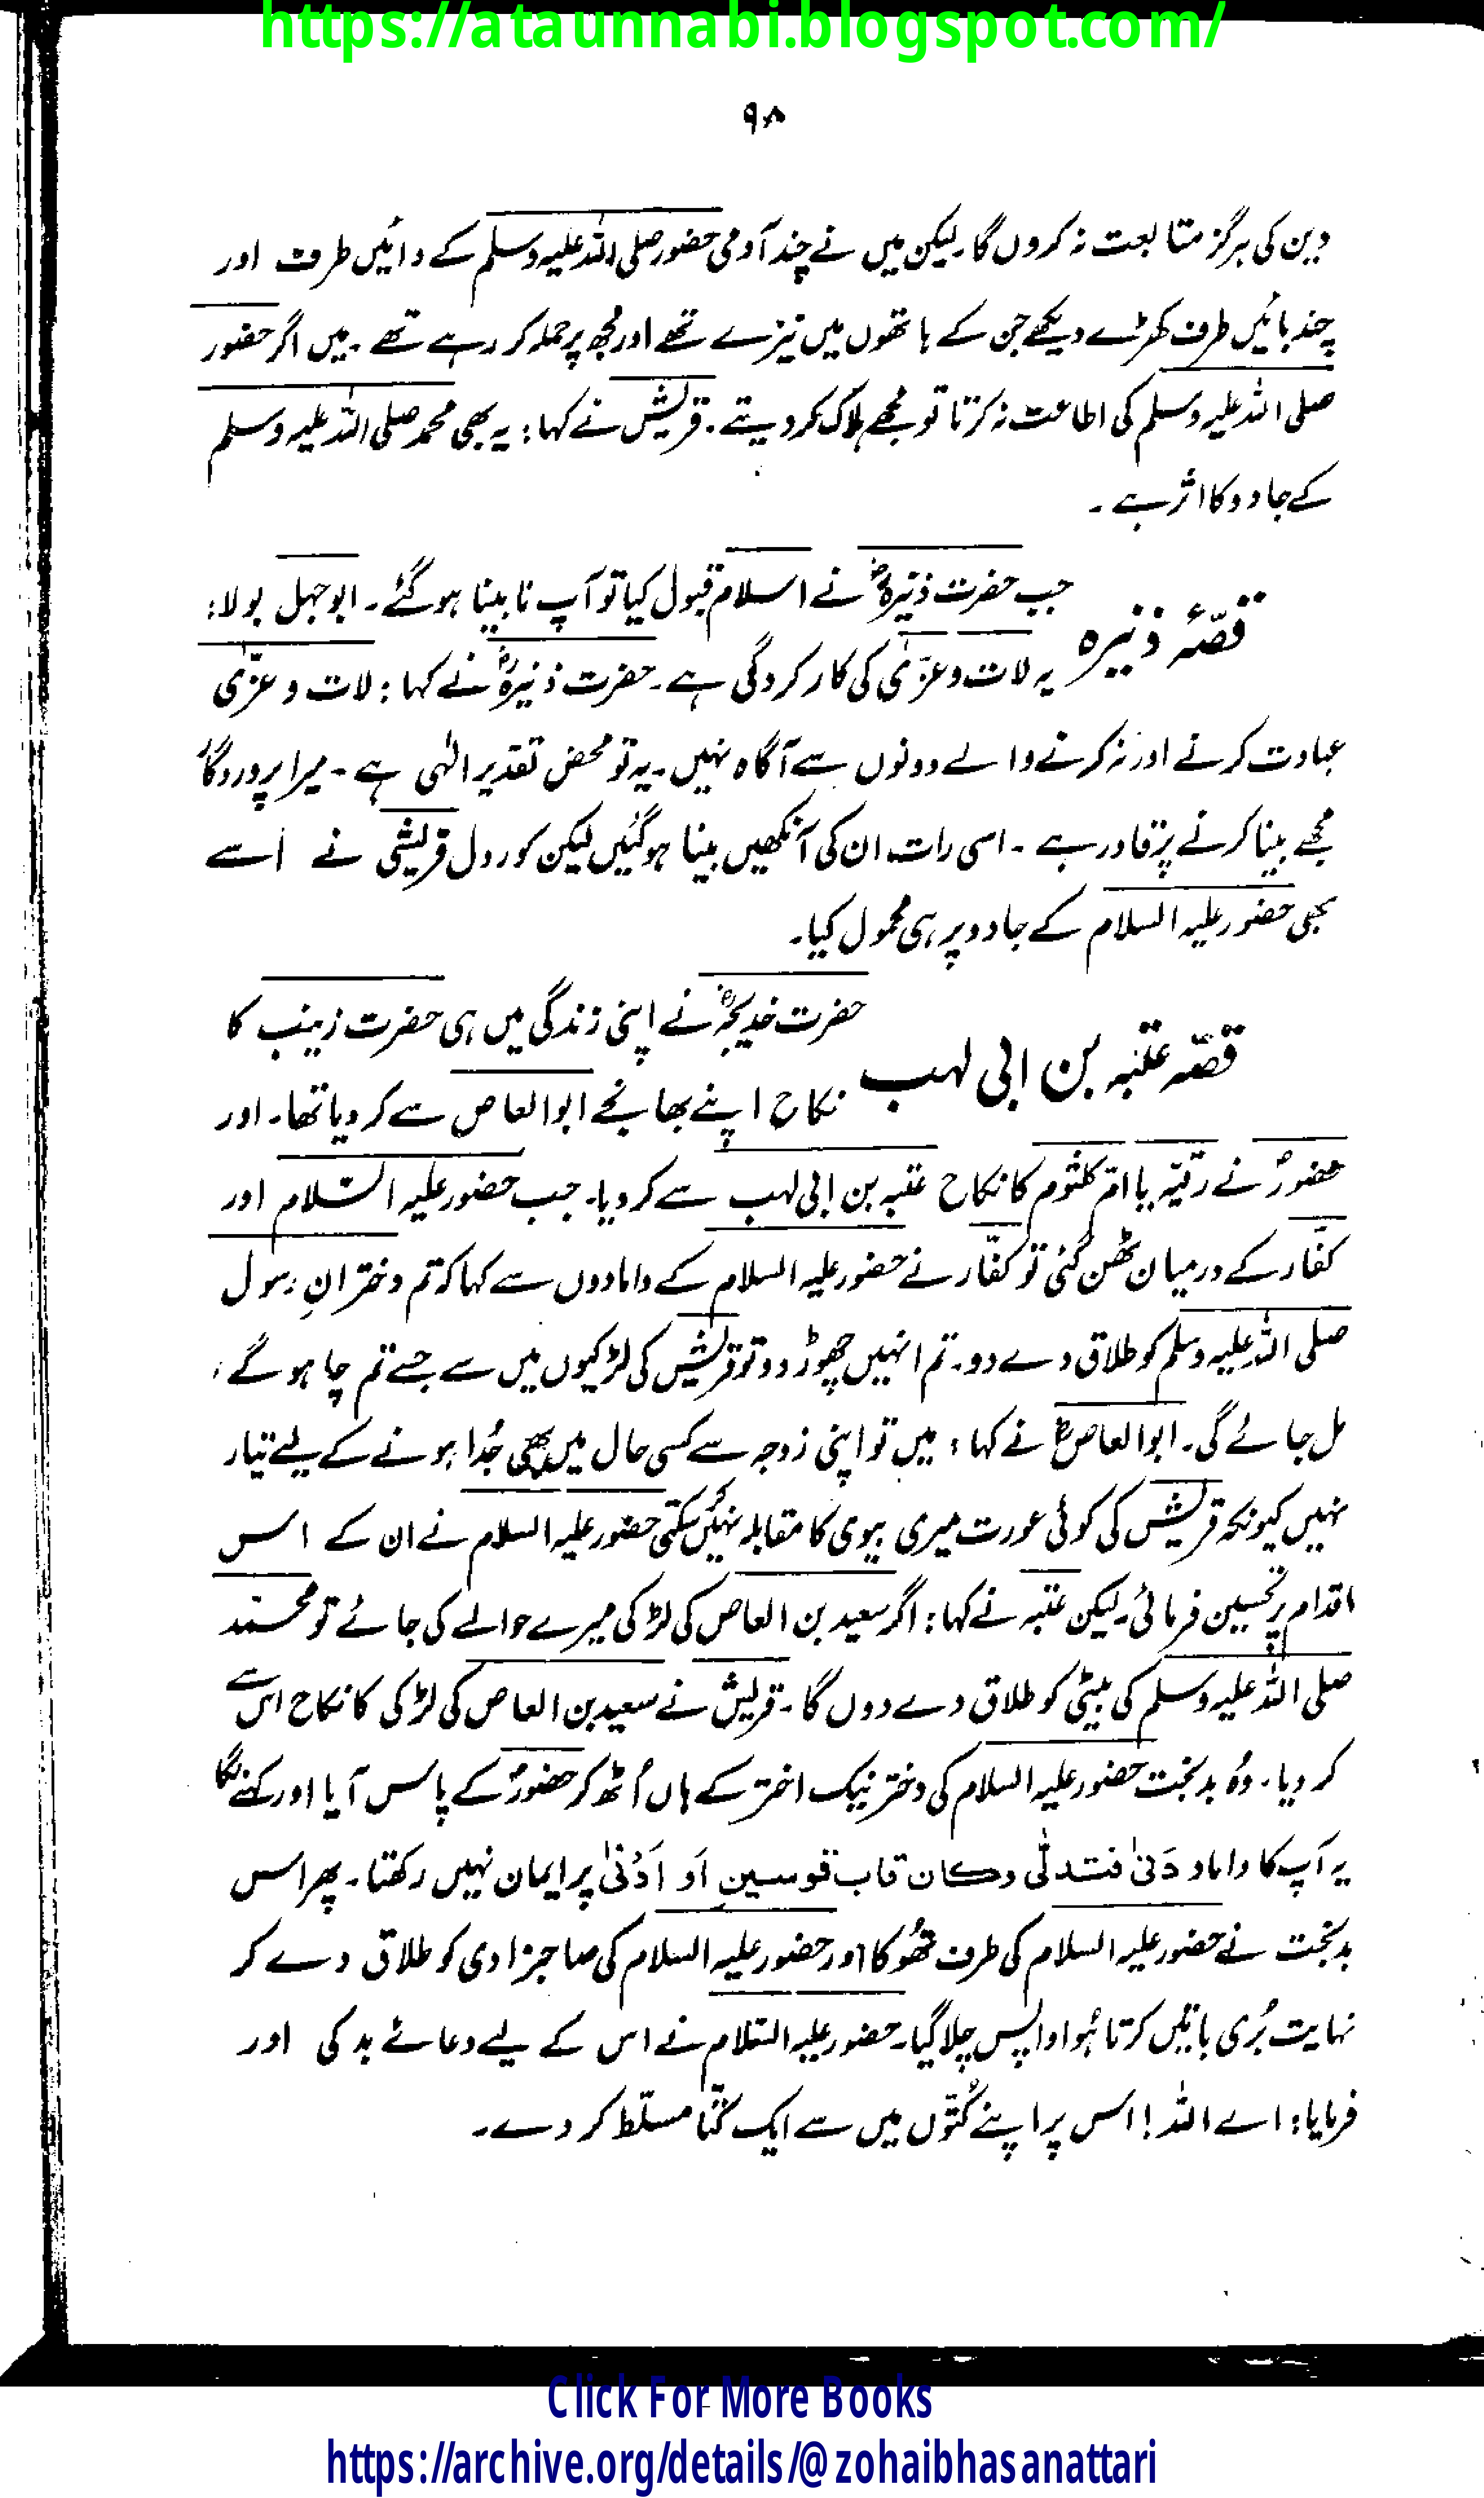 https://ataunnabi.blogspot.com/
۹۸
دین کی ہرگز متابعت نہ کروں گا۔ لیکن میں نے چند آدمی حضور صلی اللہ علیہ وسلم کے دائیں طرف اور
چند بائیں طرف کھڑے دیکھے جن کے ہاتھوں میں نیزے تھے اور مجھ پر حملہ کر رہے تھے ۔ میں اگر حضور
صلی اللہ علیہ وسلم کی اطاعت نہ کرتا تو مجھے ہلاک کر دیتے ۔ قریش نے کہا : یہ بھی محمد صلی اللہ علیہ وسلم
کے جادو کا اثر ہے ۔
قصّۂ ذنیرہ
جب حضرت ذنیرہؓ نے اسلام قبول کیا تو آپ نابینا ہو گئے ۔ ابوجہل بولا :
یہ لات و عزّیٰ کی کارکردگی ہے ۔ حضرت ذنیرہؓ نے کہا : لات و عزّیٰ
عبادت کرنے اور نہ کرنے والے دونوں سے آگاہ نہیں ۔ یہ تو محض تقدیر الٰہی ہے ۔ میرا پروردگار
مجھے بینا کرنے پر قادر ہے ۔ اسی رات ان کی آنکھیں بینا ہو گئیں لیکن کور دل قریشی نے اسے
بھی حضور علیہ السلام کے جادو پر ہی محمول کیا۔
قصّہ عتبہ بن ابی لہب
حضرت خدیجہؓ نے اپنی زندگی میں ہی حضرت زینب کا
نکاح اپنے بھانجے ابوالعاص سے کر دیا تھا۔ اور
حضورؐ نے رقیّہ یا امّ کلثوم کا نکاح عتبہ بن ابی لہب سے کر دیا۔ جب حضور علیہ السّلام اور
کفّار کے درمیان ٹھن گئی تو کفّار نے حضور علیہ السلام کے دامادوں سے کہا کہ تم دخترانِ رسول
صلی اللہ علیہ وسلم کو طلاق دے دو ۔ تم انہیں چھوڑ دو تو قریش کی لڑکیوں میں سے جسے تم چاہو گے ،
مل جائے گی ۔ ابوالعاصؓ نے کہا : میں تو اپنی زوجہ سے کسی حال میں بھی جُدا ہونے کے لیے تیار
نہیں کیونکہ قریش کی کوئی عورت میری بیوی کا مقابلہ نہیں کر سکتی حضور علیہ السلام نے ان کے اس
اقدام پر تحسین فرمائی ۔ لیکن عتبہ نے کہا : اگر سعید بن العاص کی لڑکی میرے حوالے کی جائے تو محمّد
صلی اللہ علیہ وسلم کی بیٹی کو طلاق دے دوں گا ۔ قریش نے سعید بن العاص کی لڑکی کا نکاح اس سے
کر دیا ۔ وُہ بدبخت حضور علیہ السلام کی دختر نیک اختر کے ہاں اُٹھ کر حضورؐ کے پاس آیا اور کہنے لگا
یہ آپ کا داماد دَنیٰ فتدلّٰی وکان قاب قوسین اَو اَدْنیٰ پر ایمان نہیں رکھتا ۔ پھر اس
بدبخت نے حضور علیہ السلام کی طرف تھُوکا اور حضور علیہ السلام کی صاحبزادی کو طلاق دے کر
نہایت بُری باتیں کرتا ہُوا واپس چلا گیا ۔ حضور علیہ السّلام نے اس کے لیے دعائے بد کی اور
فرمایا : اے اللہ ! اس پر اپنے کُتّوں میں سے ایک کُتّا مسلّط کر دے ۔
Click For More Books
https://archive.org/details/@zohaibhasanattari